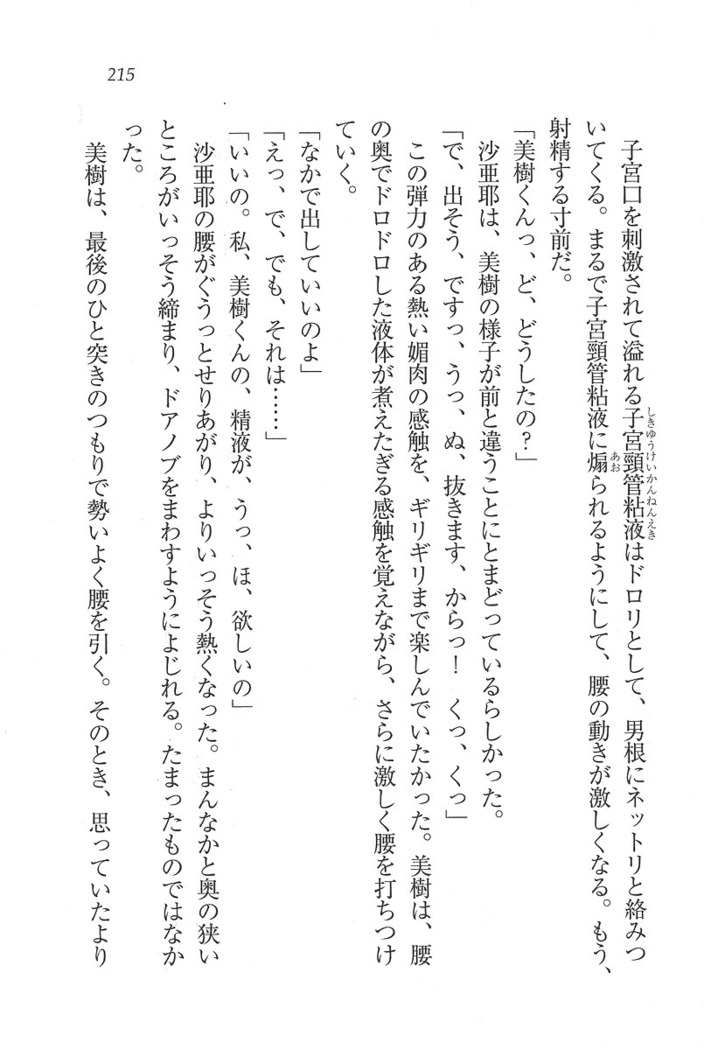 215
子宮口を刺激されて溢れる子宮頸管粘液はドロリとして、男根にネットリと絡みつ
しきゆうけいかんねんえき
いてくる。まるで子宮頸管粘液に煽られるようにして、腰の動きが激しくなる。もう、
あお
射精する寸前だ。
「美樹くんっ、ど、どうしたの？」
沙亜耶は、美樹の様子が前と違うことにとまどっているらしかった。
「で、出そう、ですっ、うっ、ぬ、抜きます、からっ！　くっ、くっ」
この弾力のある熱い媚肉の感触を、ギリギリまで楽しんでいたかった。美樹は、腰
の奥でドロドロした液体が煮えたぎる感触を覚えながら、さらに激しく腰を打ちつけ
ていく。
「なかで出していいのよ」
「えっ、で、でも、それは……」
「いいの。私、美樹くんの、精液が、うっ、ほ、欲しいの」
沙亜耶の腰がぐうっとせりあがり、よりいっそう熱くなった。まんなかと奥の狭い
ところがいっそう締まり、ドアノブをまわすようによじれる。たまったものではなか
った。
美樹は、最後のひと突きのつもりで勢いよく腰を引く。そのとき、思っていたより